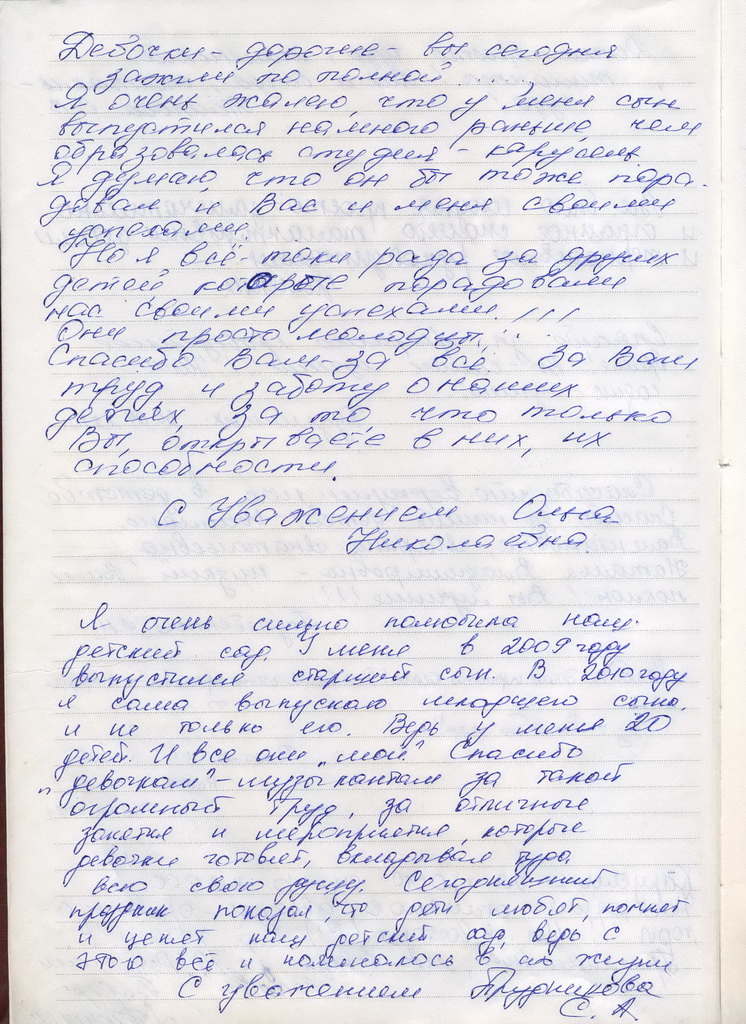 Девочки - дорогие - вы сегодня
зажгли по полной.......
Я очень жалею, что у меня сын
выпустился намного раньше, чем
образовалась студия - карусель.
Я думаю, что он бы тоже пора-
довал и Вас и меня своими
успехами.
Но я всё-таки рада за других
детей которые порадовали
нас своими успехами!!!
Они просто молодцы!..
Спасибо Вам - за всё. За Ваш
труд и заботу о наших
детях, за то что только
Вы, открываете в них, их
способности.
С Уважением Ольга
Николаевна.
Я очень сильно полюбила наш
детский сад. У меня в 2009 году
выпустился старший сын. В 2010 году
я сама выпускаю младшего сына
и не только его. Ведь у меня 20
детей. И все они „мои". Спасибо
„девочкам" - музыкантам за такой
огромный труд, за отличные
занятия и мероприятия, которые
девочки готовят, вкладывая туда
всю свою душу. Сегодняшний
праздник показал, что дети любят, помнят
и ценят наш детский сад, ведь с
этого всё и начиналось в их жизни
С уважением Прудникова
С. А.